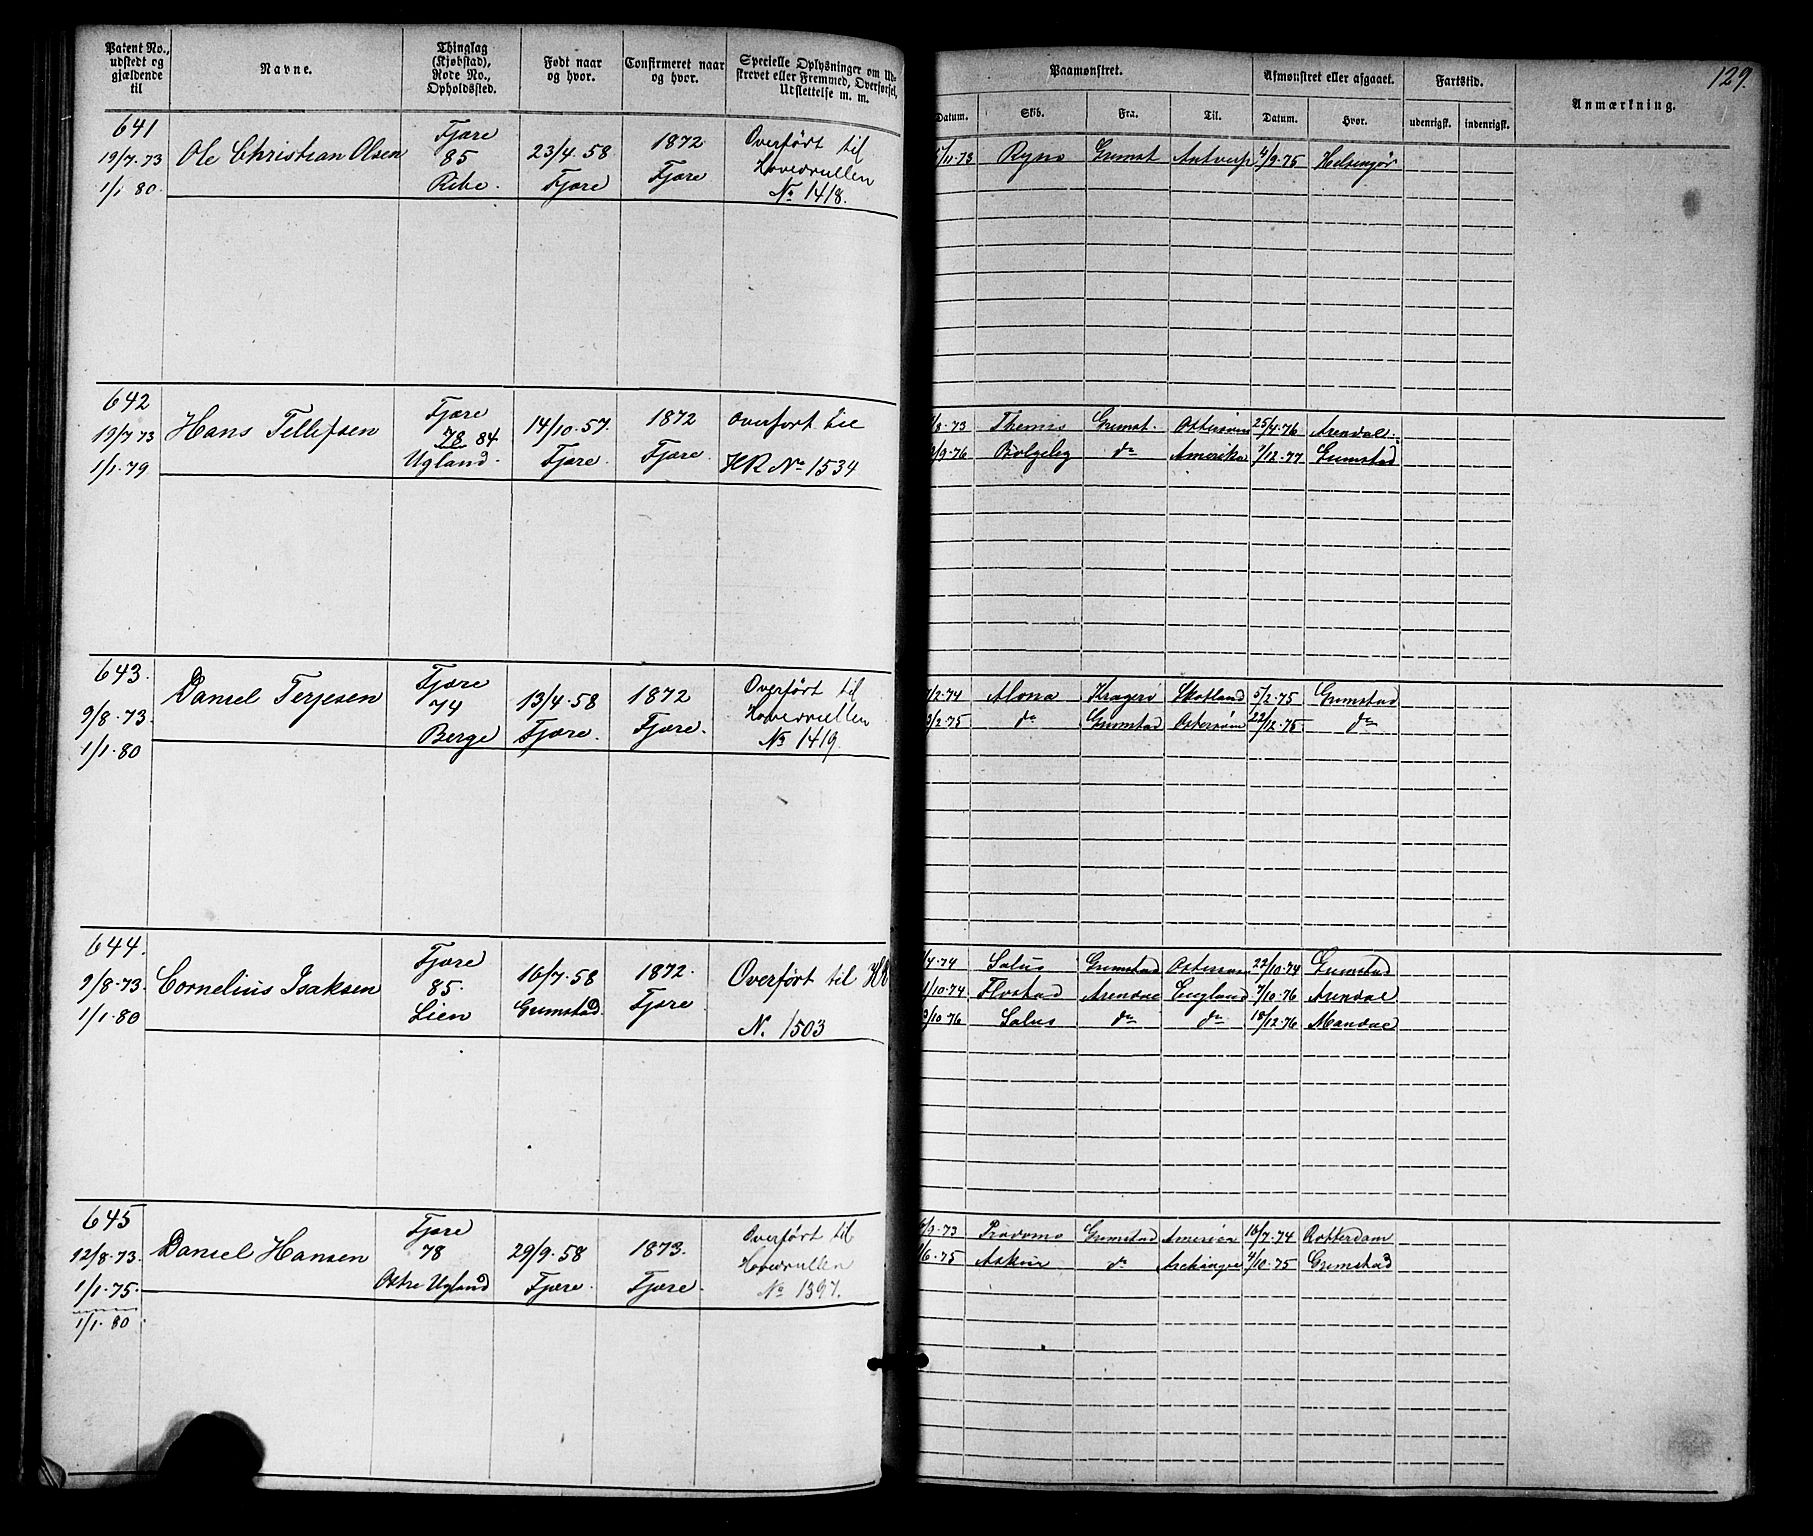 129.
Patent No., udstedt og gjældende til
Navne.
Thinglag (Kjøbstad), Rode No., Opholdssted.
Født naar og hvor.
Confirmeret naar og hvor.
Specielle Oplysninger om Udskrevet eller Fremmed, Overførsel, Udslettelse m. m.
Paamønstret.
Afmønstret eller afgaaet.
Fartstid.
Anmærkning.
Datum.
Skib.
Fra.
Til.
Datum.
Hvor.
udenrigsk.
indenrigsk.
641
19/7.73
1/1.80.
Ole Christian Olsen
Fjære
85
Ribe.
23/4.58
Fjære
1872
Fjære
Overført til
Hovedrullen
No 1418.
/11.73 Ryno Grimst Antverp 4/9.75 Helsingør
642
19/7 73
1/1.79
Hans Tellefsen
Fjære
78 84
Ugland.
14/10.57.
Fjære.
1872
Fjære.
Overført til
HR No 1534
/8.73 Themis Grimst. Østersøen 25/4.76 Arendal.
/9.76 Bolgeley do Amerika 7/12.77 Grimstad
643.
9/8.73.
1/1.80
Daniel Terjesen
Fjære
74
Berge
13/4.58
Fjære.
1872
Fjære.
Overført til
Hovedrullen
No 1419.
/2.74 Alona Kragerø Skotland 5/2.75 Grimstad
/2.75 do Grimstad Østersøen 22/12.75 do
644.
9/8.73.
1/1.80
Cornelius Isaksen
Fjære
85.
Lien
16/7.58
Grimstad.
1872.
Fjære.
Overført til HR
N. 1503
/4.74 Salus Grimstad Østersøen 22/10.74 Grimstad
/10.74 Flostad Arendal England 7/10.76 Arendal
/10.76 Salus do do 18/12.76 Mandal
645
12/8.73.
1/1.75.
1/1.80.
Daniel Hansen
Fjære
78
Østre Ugland
29/9.58
Fjære.
1873.
Fjære.
Overført til
Hovedrullen
No 1397.
/9.73 Prodomo Grimstad Amerika 16/7.74 Rotterdam
/6.75 Askur do Archangel 4/10.75 Grimstad